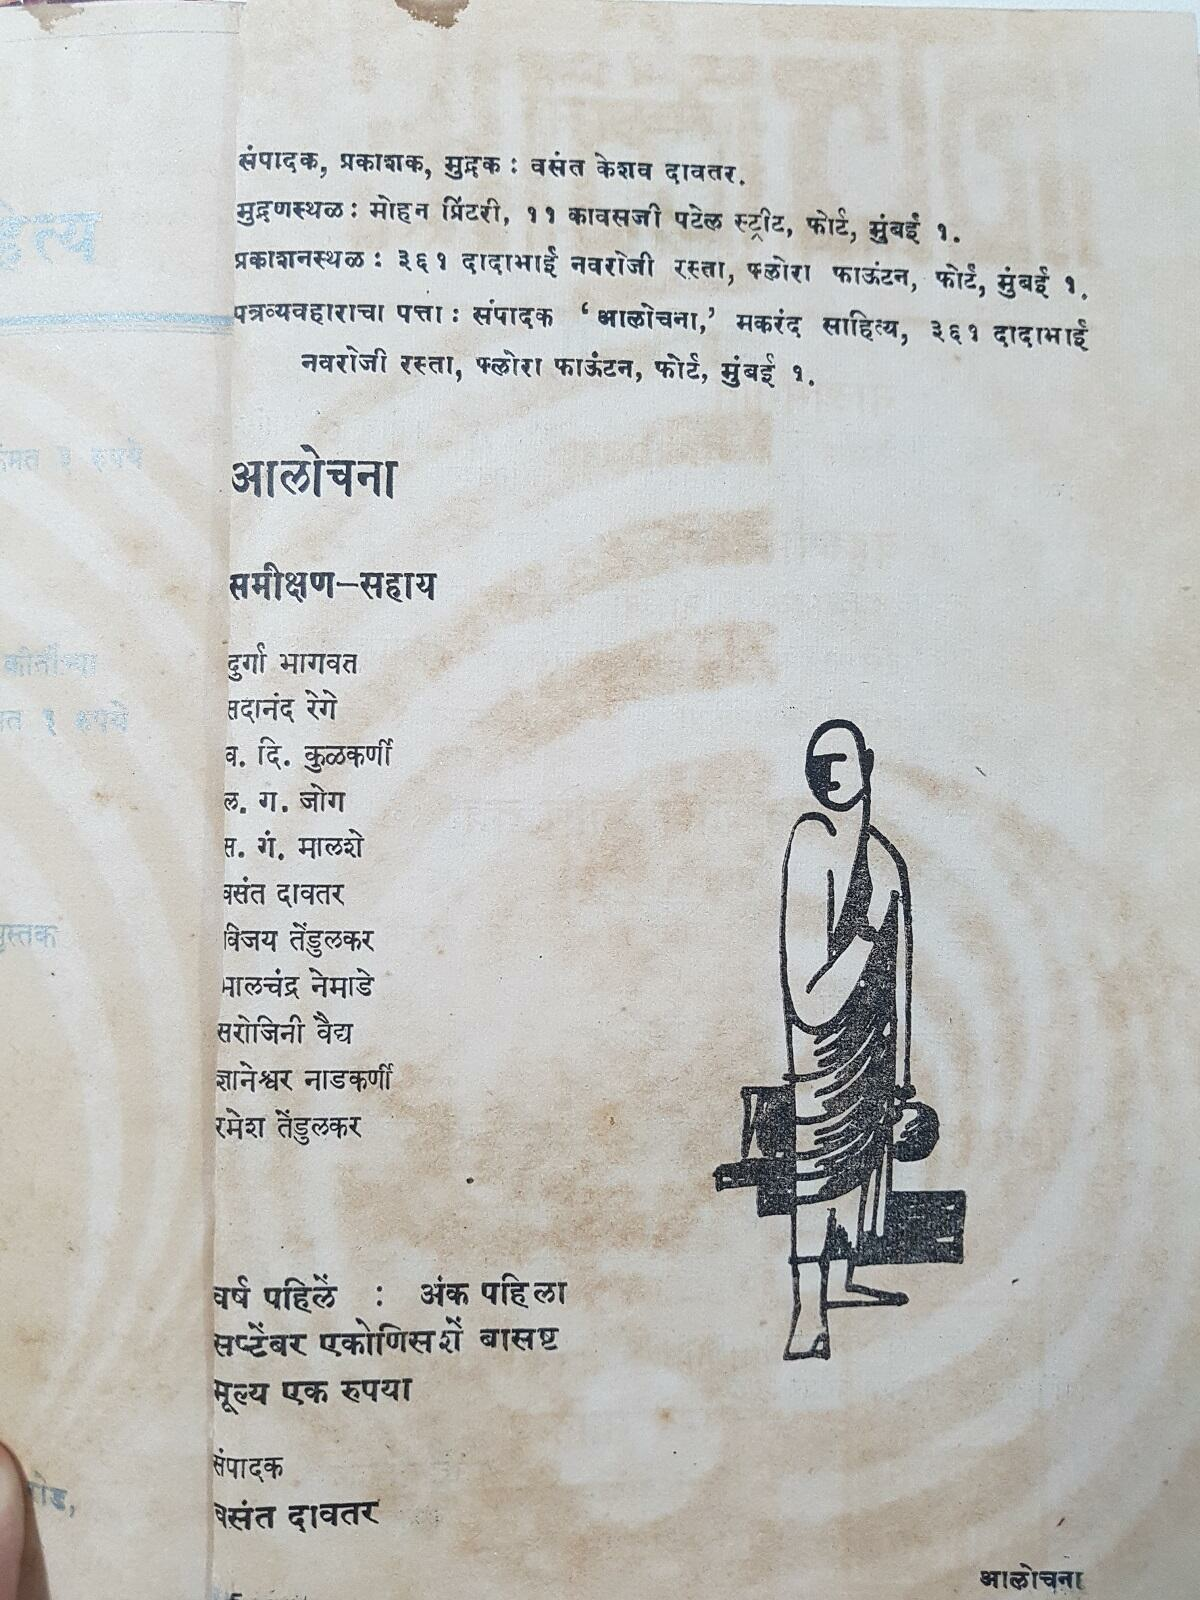 संपादक, प्रकाशक, मुद्रक : वसंत केशव दावतर.
मुद्रणस्थळ : मोहन प्रिंटरी, ११ कावसजी पटेल स्ट्रीट, फोर्ट, मुंबई १.
प्रकाशनस्थळ : ३६१ दादाभाई नवरोजी रस्ता, फ्लोरा फाऊंटन, फोर्ट, मुंबई १.
पत्रव्यवहाराचा पत्ता : संपादक ‘आलोचना,’ मकरंद साहित्य, ३६१ दादाभाई
नवरोजी रस्ता, फ्लोरा फाऊंटन, फोर्ट, मुंबई १.
आलोचना
समीक्षण–सहाय
दुर्गा भागवत
सदानंद रेगे
व. दि. कुळकर्णी
ल. ग. जोग
स. गं. मालशे
वसंत दावतर
विजय तेंडुलकर
भालचंद्र नेमाडे
सरोजिनी वैद्य
ज्ञानेश्वर नाडकर्णी
रमेश तेंडुलकर
वर्ष पहिलें : अंक पहिला
सप्टेंबर एकोणिसशें बासष्ट
मूल्य एक रुपया
संपादक
वसंत दावतर
आलोचना